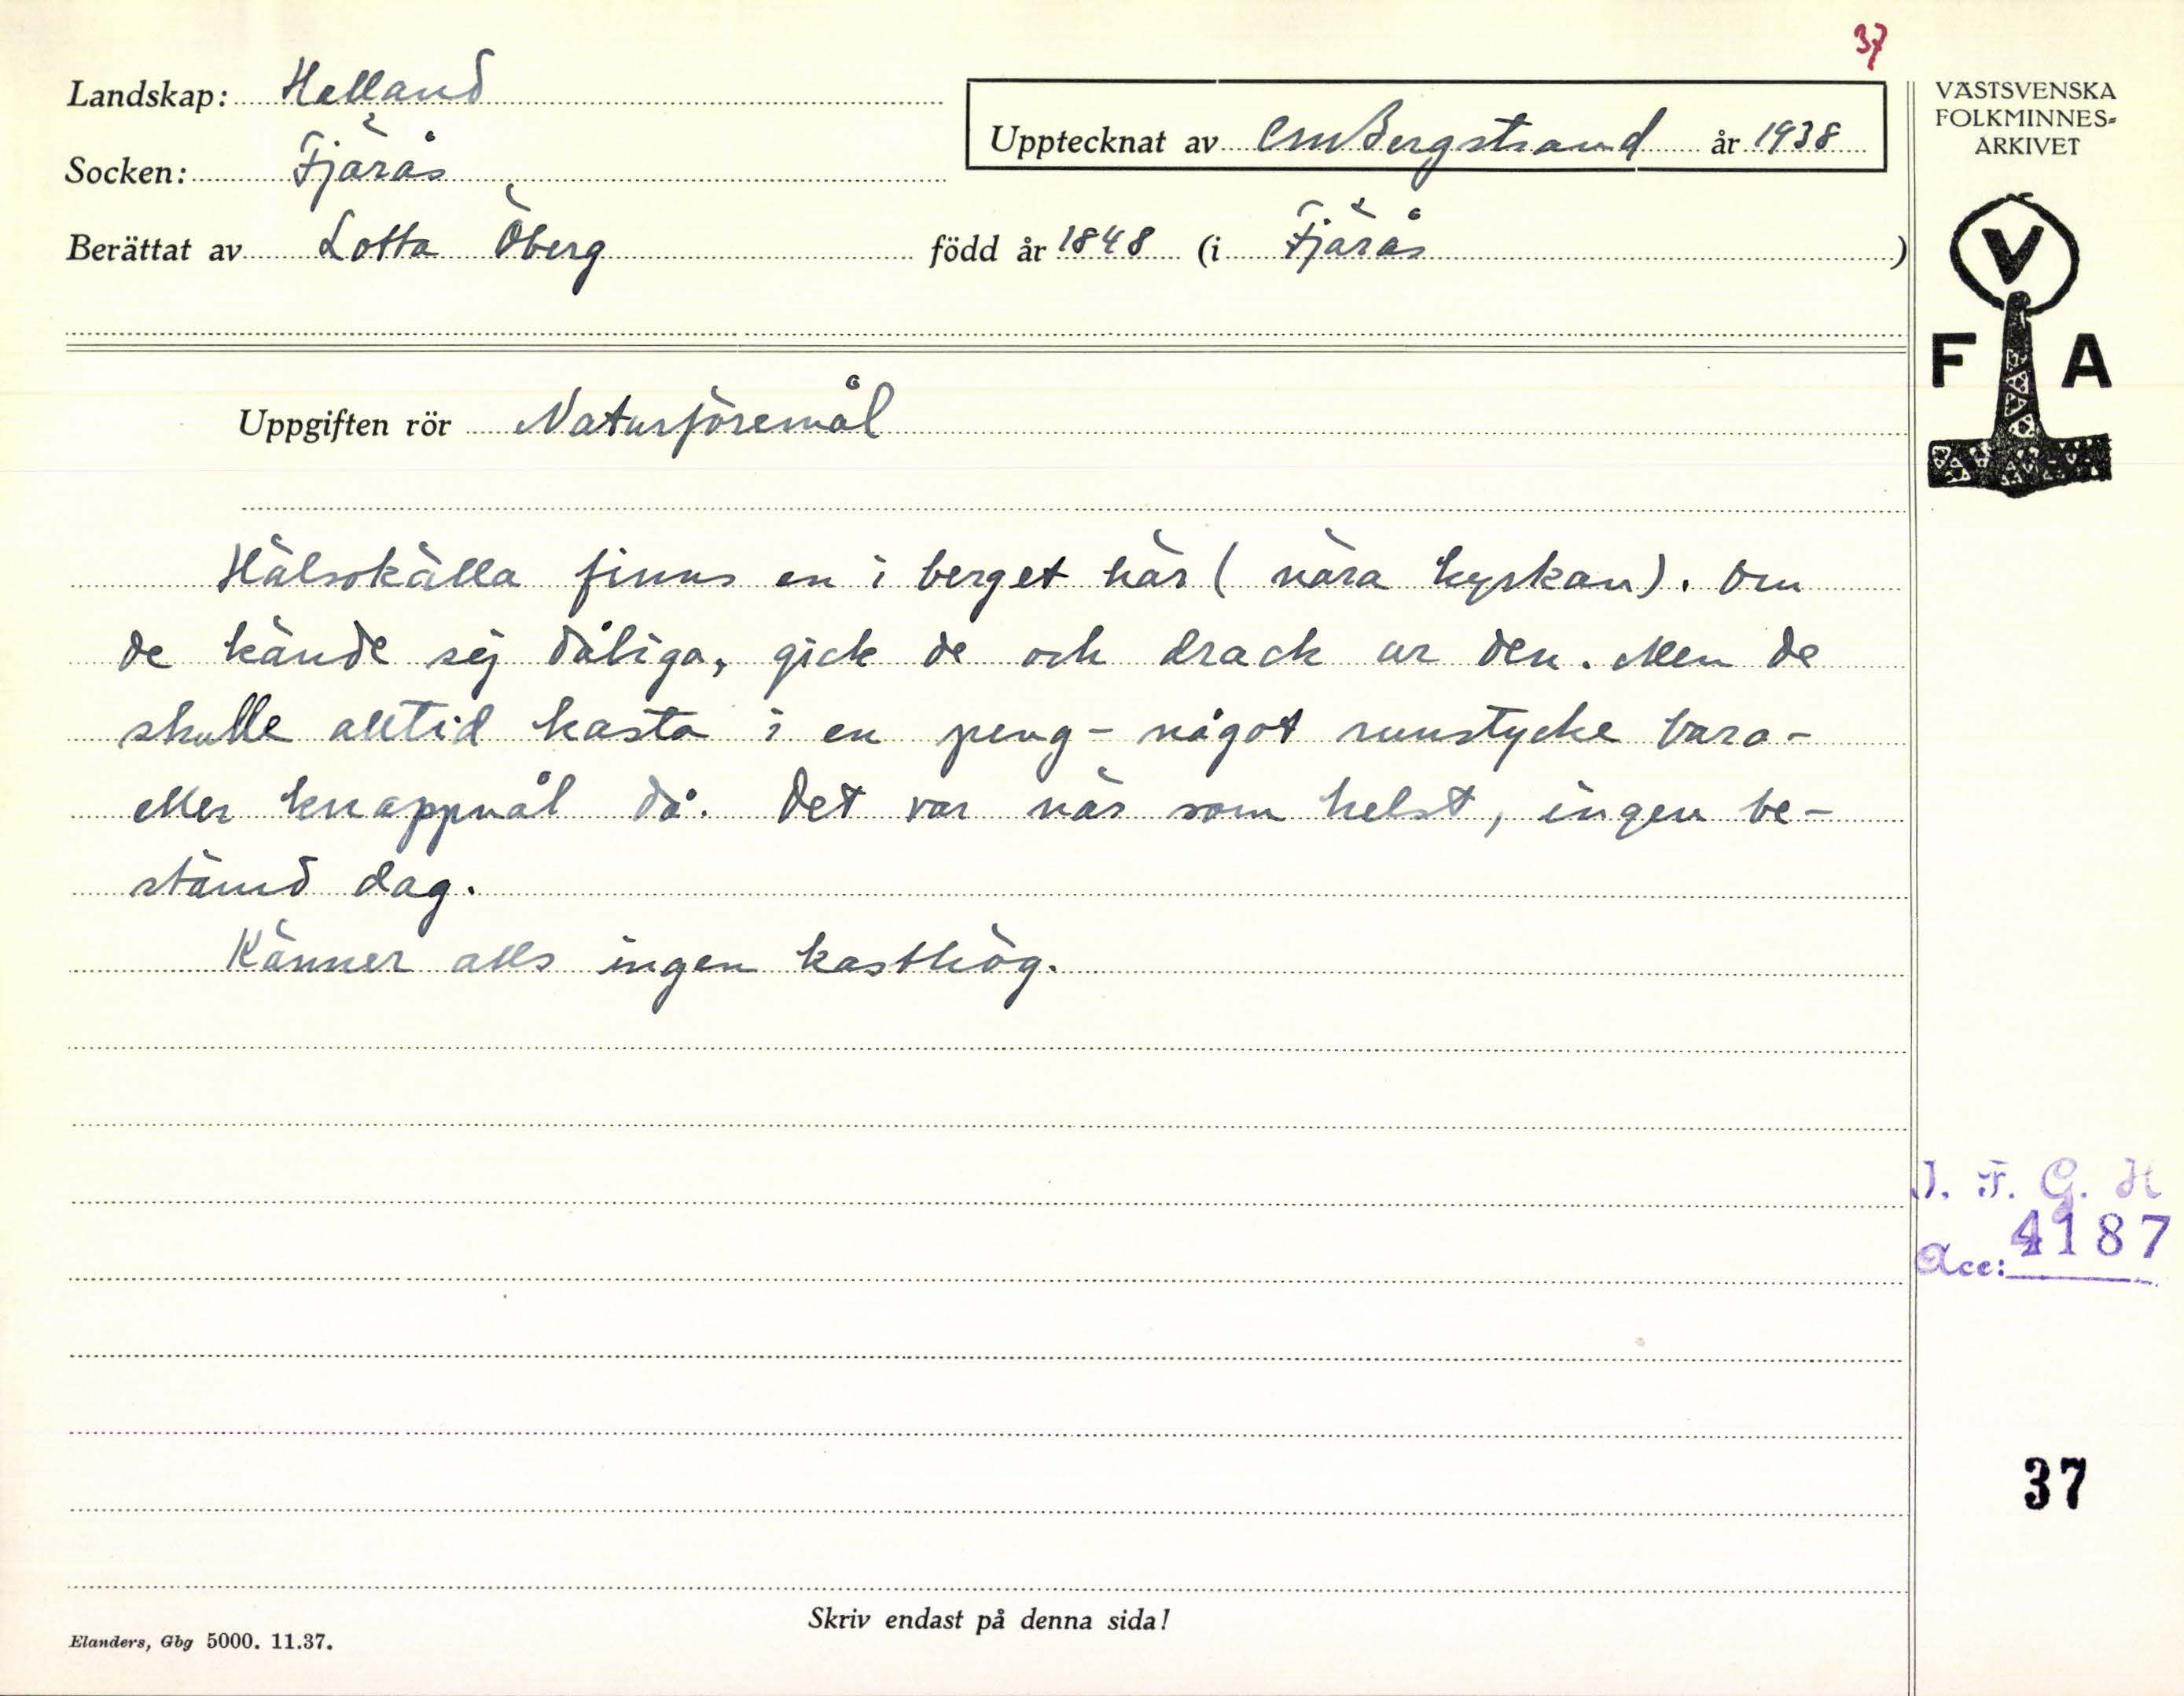 37
Landskap: Halland
Socken: Fjärås
Upptecknat av CMBergstrand år 1938
Berättat av Lotta Öberg född år 1848 (i Fjärås)
VÄSTSVENSKA
FOLKMINNES-
ARKIVET
V
F A
Uppgiften rör Naturföremål
Hälsokälla finns en i berget här (nära kyrkan). Om
de kände sej dåliga, gick de och drack ur den. Men de
skulle alltid kasta i en peng- något runstycke bara-
eller knappnål då. Det var när som helst, ingen be-
stämd dag.
Känner alls ingen kasthög.
I. F. G. H
Acc: 4187
37
Skriv endast på denna sida!
Elanders, Gbg 5000. 11.37.